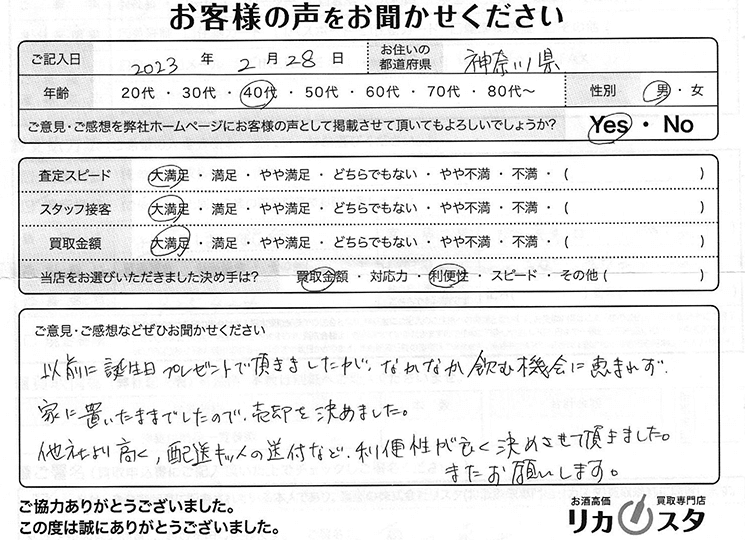 お客様の声をお聞かせください
ご記入日 2023 年 2 月 28 日 お住いの都道府県 神奈川県
年齢 20代 ・ 30代 ・ 40代 ・ 50代 ・ 60代 ・ 70代 ・ 80代〜 性別 男 ・ 女
ご意見・ご感想を弊社ホームページにお客様の声として掲載させて頂いてもよろしいでしょうか? Yes ・ No
査定スピード 大満足 ・ 満足 ・ やや満足 ・ どちらでもない ・ やや不満 ・ 不満 ・ ( )
スタッフ接客 大満足 ・ 満足 ・ やや満足 ・ どちらでもない ・ やや不満 ・ 不満 ・ ( )
買取金額 大満足 ・ 満足 ・ やや満足 ・ どちらでもない ・ やや不満 ・ 不満 ・ ( )
当店をお選びいただきました決め手は? 買取金額 ・ 対応力 ・ 利便性 ・ スピード ・ その他 ( )
ご意見・ご感想などぜひお聞かせください
以前に誕生日プレゼントで頂きましたが、なかなか飲む機会に恵まれず、
家に置いたままでしたので、売却を決めました。
他社より高く、配送キットの送付など、利便性が良く決めさせて頂きました。
またお願いします。
ご協力ありがとうございました。
この度は誠にありがとうございました。
お酒高価 買取専門店
リカスタ